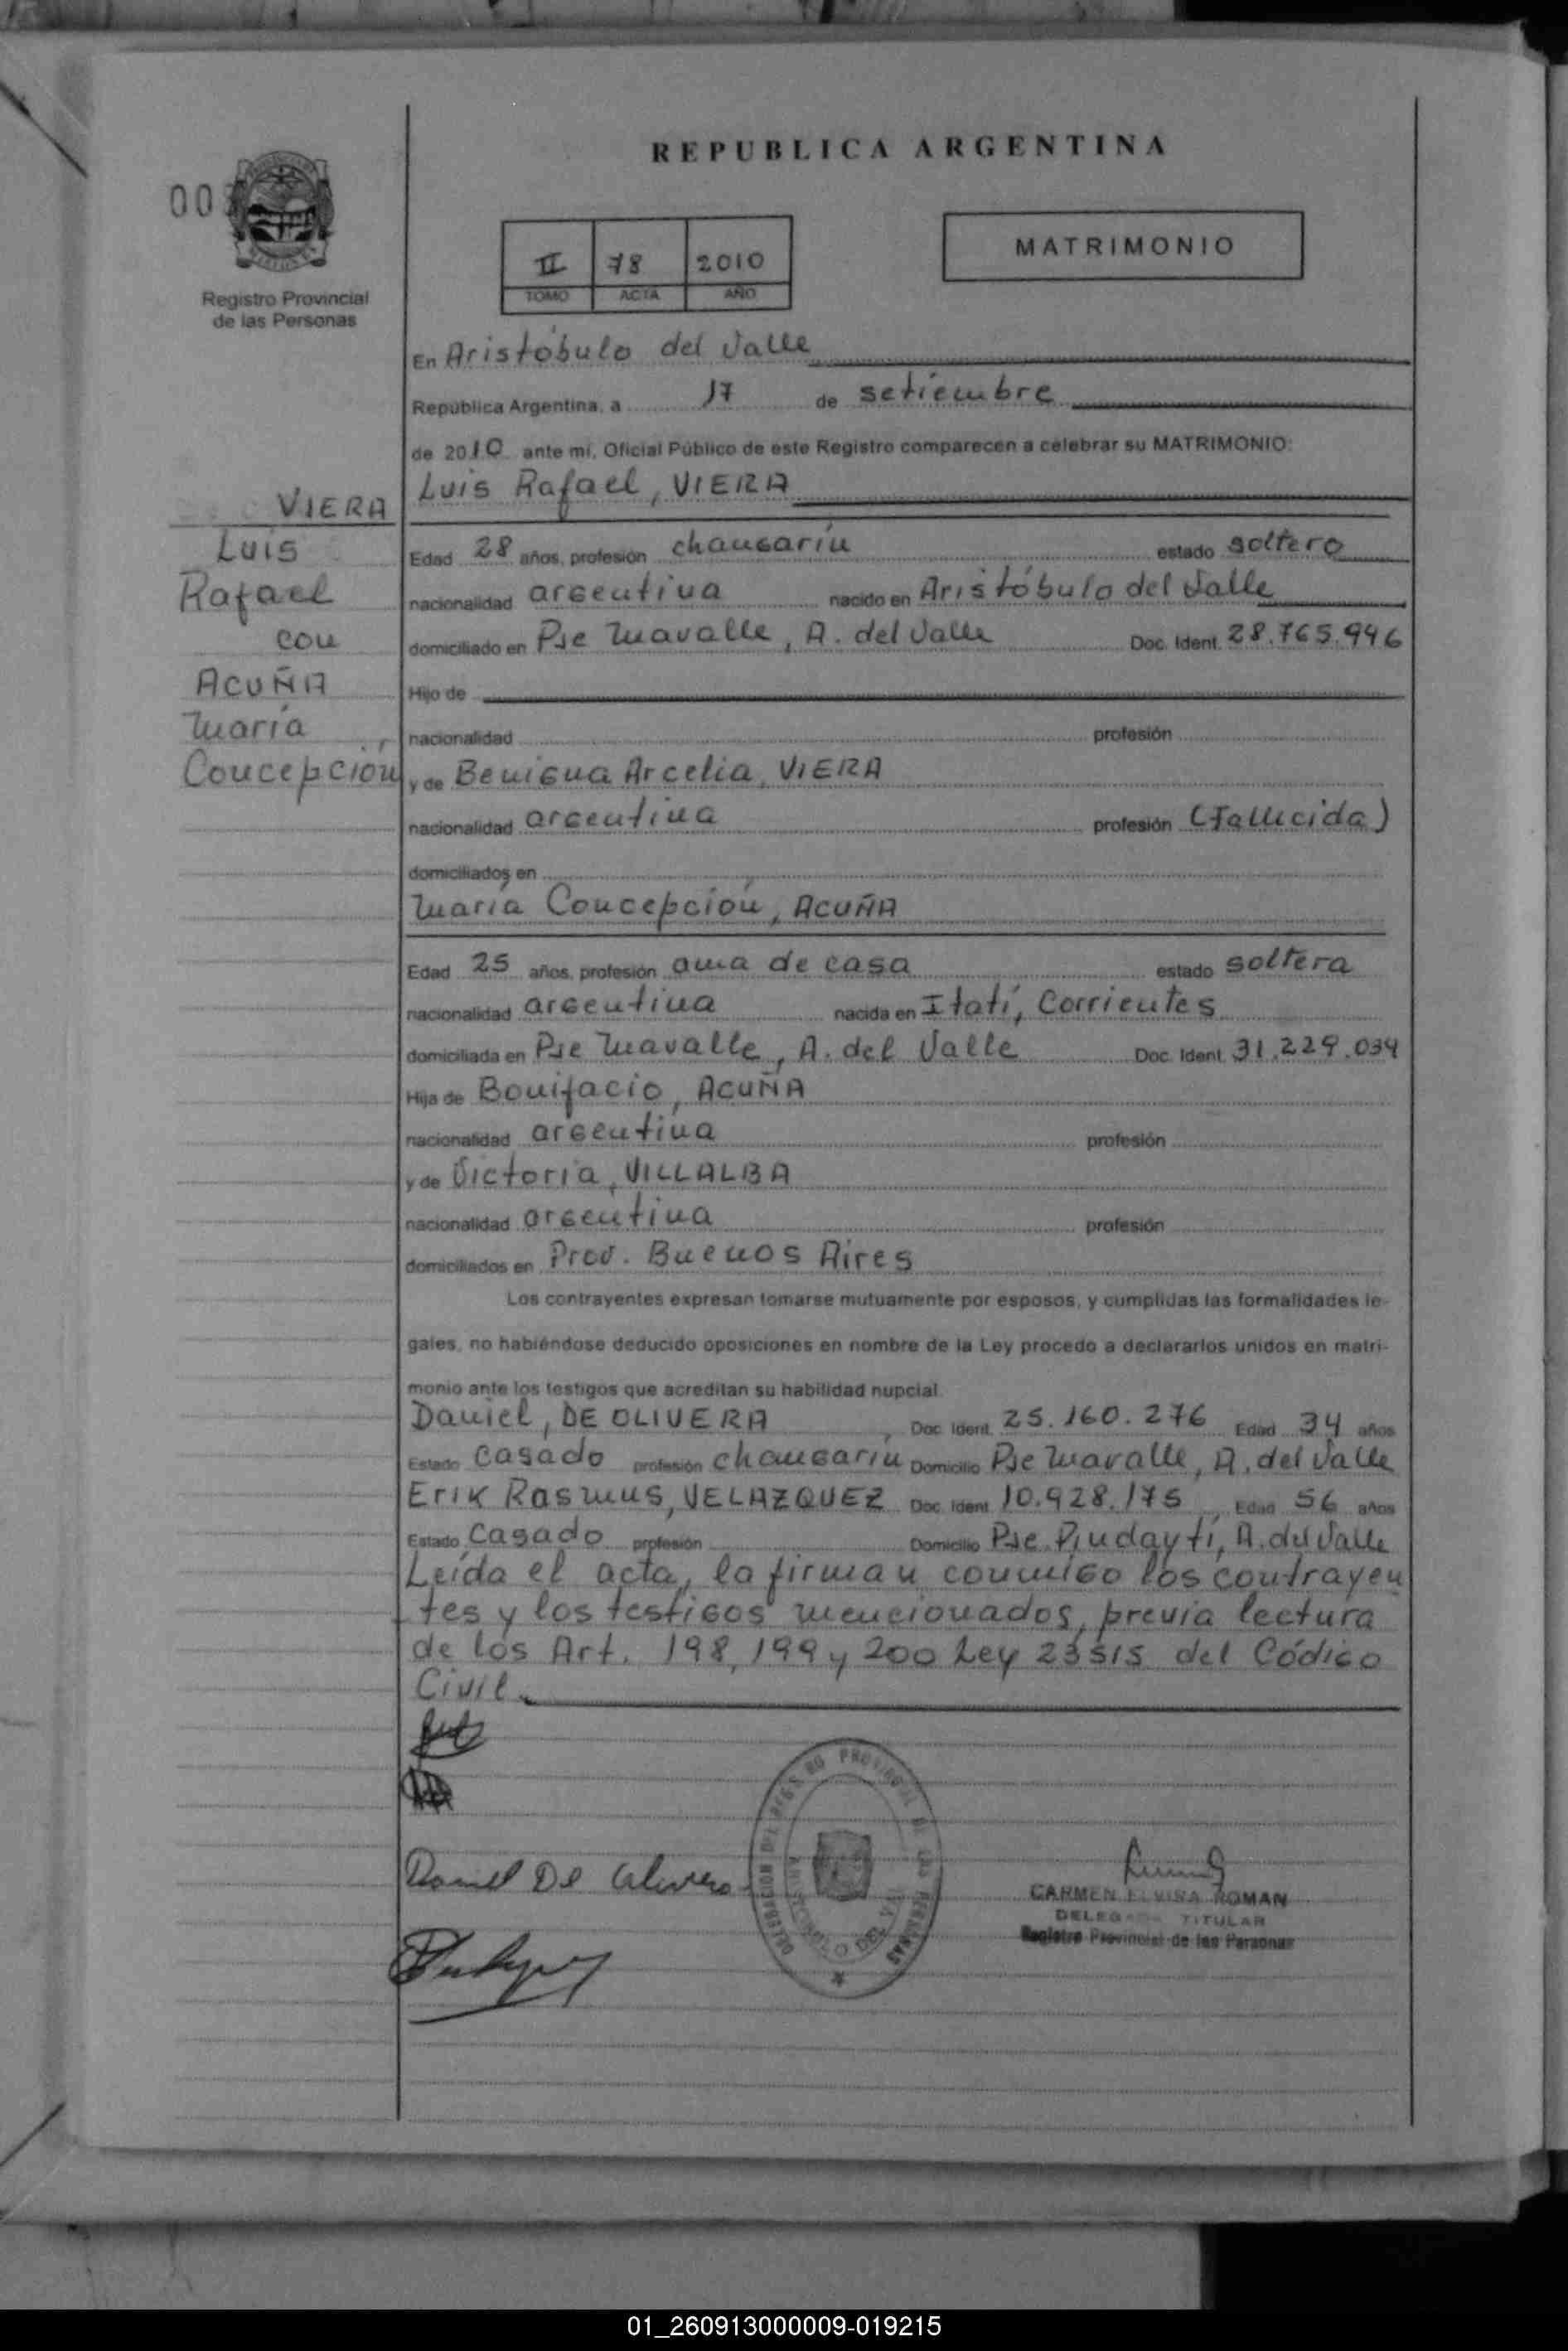 REPUBLICA ARGENTINA
00
Registro Provincial
de las Personas
II 78 2010
TOMO ACTA AÑO
MATRIMONIO
En Aristóbulo del Valle
República Argentina, a 17 de setiembre
de 2010 ante mí, Oficial Público de este Registro comparecen a celebrar su MATRIMONIO:
Luis Rafael, VIERA
VIERA
Luis
Rafael
con
ACUÑA
María
Concepción
Edad 28 años, profesión changarín estado soltero
nacionalidad argentina nacido en Aristóbulo del Valle
domiciliado en Pje Mavalle, A. del Valle Doc. Ident. 28.765.946
Hijo de
nacionalidad profesión
y de Benigna Arcelia, VIERA
nacionalidad argentina profesión (Fallecida)
domiciliados en
María Concepción, ACUÑA
Edad 25 años, profesión ama de casa estado soltera
nacionalidad argentina nacida en Itatí, Corrientes
domiciliada en Pje Mavalle, A. del Valle Doc. Ident. 31.229.034
Hija de Bonifacio, ACUÑA
nacionalidad argentina profesión
y de Victoria, VILLALBA
nacionalidad argentina profesión
domiciliados en Prov. Buenos Aires
Los contrayentes expresan tomarse mutuamente por esposos, y cumplidas las formalidades le-
gales, no habiéndose deducido oposiciones en nombre de la Ley procedo a declararlos unidos en matri-
monio ante los testigos que acreditan su habilidad nupcial
Daniel, DE OLIVERA, Doc. Ident. 25.160.276 Edad 34 años
Estado casado profesión changarín Domicilio Pje Mavalle, A. del Valle
Erik Rasmus, VELAZQUEZ Doc. Ident. 10.928.175, Edad 56 años
Estado Casado profesión Domicilio Pje. Pindaytí, A. del Valle
Leída el acta, la firman conmigo los contrayen
tes y los testigos mencionados, previa lectura
de los Art. 198, 199 y 200 Ley 23515 del Código
Civil.
DELEGACION DEL REGISTRO PROVINCIAL DE LAS PERSONAS
ARISTOBULO DEL VALLE
Daniel De Olivera
CARMEN ELVIRA ROMAN
DELEGADA TITULAR
Registro Provincial de las Personas
01_260913000009-019215